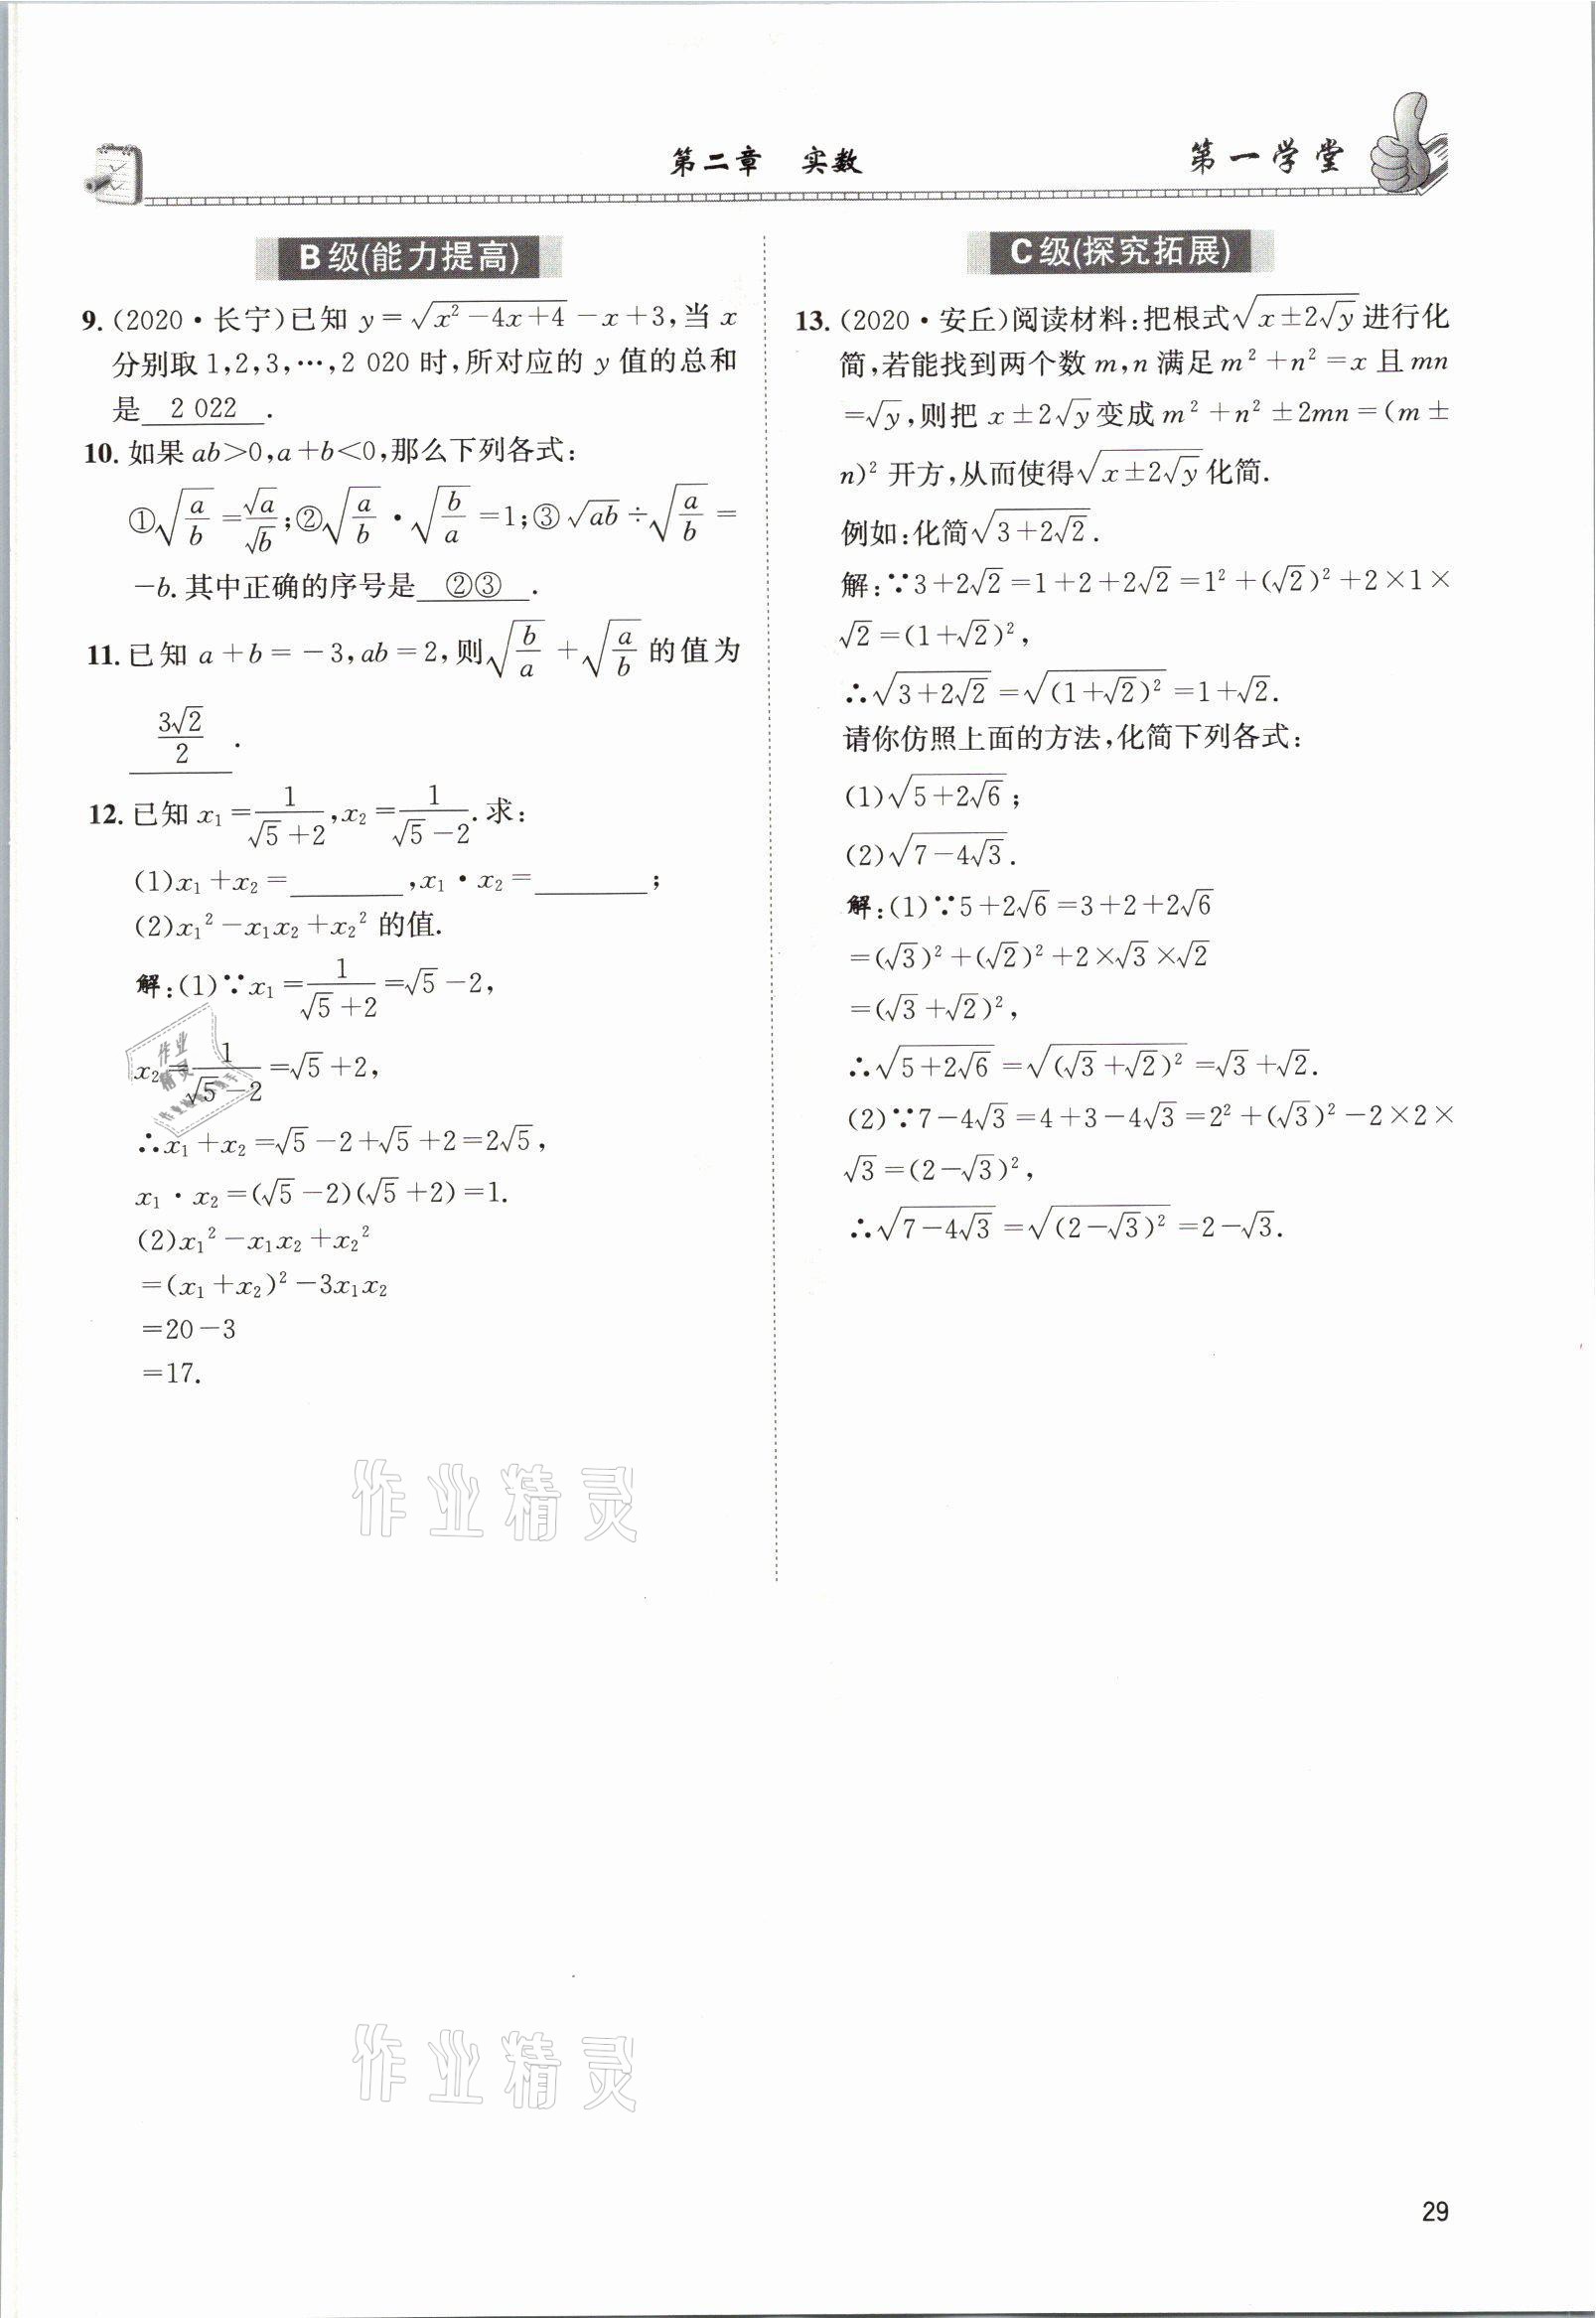 第二章　实数
第一学堂
B级(能力提高)
9.(2020·长宁)已知 y=√(x²-4x+4)-x+3,当 x
分别取 1,2,3,…,2 020 时,所对应的 y 值的总和
是 2 022 .
10.如果 ab>0,a+b<0,那么下列各式:
①√(a/b)=√a/√b;②√(a/b)·√(b/a)=1;③√(ab)÷√(a/b)=
-b.其中正确的序号是 ②③ .
11.已知 a+b=-3,ab=2,则√(b/a)+√(a/b)的值为
3√2/2 .
12.已知 x₁=1/(√5+2),x₂=1/(√5-2).求:
(1)x₁+x₂=________,x₁·x₂=________;
(2)x₁²-x₁x₂+x₂² 的值.
解:(1)∵x₁=1/(√5+2)=√5-2,
x₂=1/(√5-2)=√5+2,
∴x₁+x₂=√5-2+√5+2=2√5,
x₁·x₂=(√5-2)(√5+2)=1.
(2)x₁²-x₁x₂+x₂²
=(x₁+x₂)²-3x₁x₂
=20-3
=17.
C级(探究拓展)
13.(2020·安丘)阅读材料:把根式√(x±2√y)进行化
简,若能找到两个数 m,n 满足 m²+n²=x 且 mn
=√y,则把 x±2√y变成 m²+n²±2mn=(m±
n)² 开方,从而使得√(x±2√y)化简.
例如:化简√(3+2√2).
解:∵3+2√2=1+2+2√2=1²+(√2)²+2×1×
√2=(1+√2)²,
∴√(3+2√2)=√((1+√2)²)=1+√2.
请你仿照上面的方法,化简下列各式:
(1)√(5+2√6);
(2)√(7-4√3).
解:(1)∵5+2√6=3+2+2√6
=(√3)²+(√2)²+2×√3×√2
=(√3+√2)²,
∴√(5+2√6)=√((√3+√2)²)=√3+√2.
(2)∵7-4√3=4+3-4√3=2²+(√3)²-2×2×
√3=(2-√3)²,
∴√(7-4√3)=√((2-√3)²)=2-√3.
作业
精灵
作业精灵
作业精灵
29